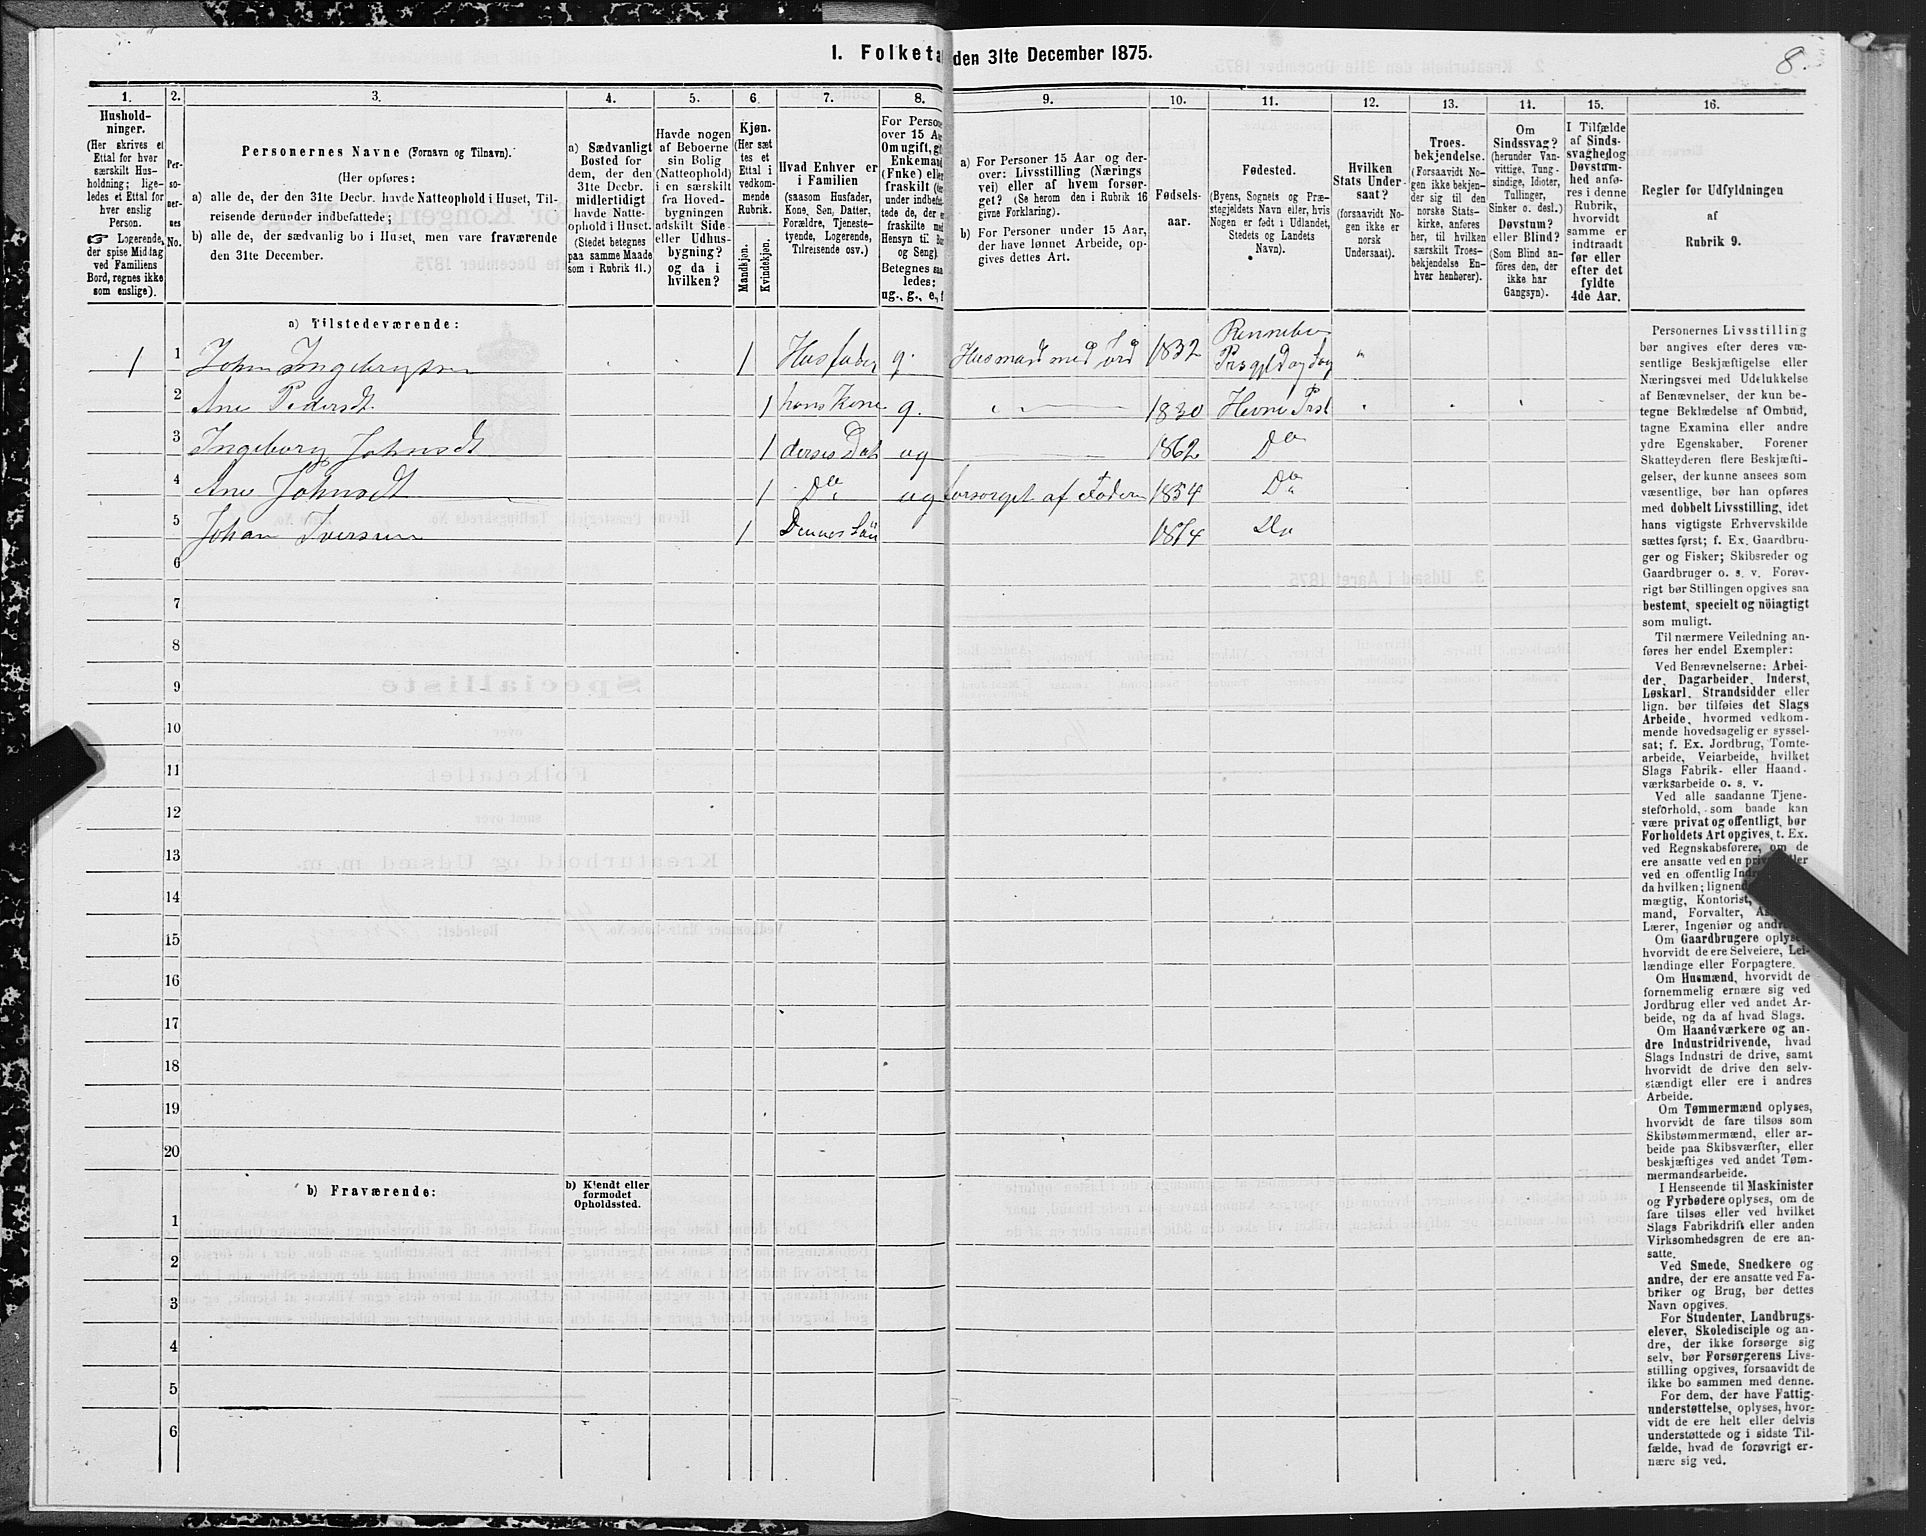 I. Folketa den 31te December 1875.
8.
1.
Hushold-
ninger.
(Her skrives et
Ettal for hver
særskilt Hus-
holdning; lige-
ledes et Ettal for
hver enslig
Person.
☞ Logerende,
der spise Middag
ved Familiens
Bord, regnes ikke
som enslige).
2.
Per-
so-
ner-
nes
No.
3.
Personernes Navne (Fornavn og Tilnavn).
(Her opføres:
a) alle de, der den 31te Decbr. havde Natteophold i Huset, Til-
reisende derunder indbefattede;
b) alle de, der sædvanlig bo i Huset, men vare fraværende
den 31te December.
4.
a) Sædvanligt
Bosted for
dem, der den
31te Decbr.
midlertidigt
havde Natte-
ophold i Huset.
(Stedet betegnes
paa samme Maade
som i Rubrik 11.)
5.
Havde nogen
af Beboerne
sin Bolig
(Natteophold)
i en særskilt
fra Hoved-
bygningen
adskilt Side-
eller Udhus-
bygning?
og da i
hvilken?
6.
Kjøn.
(Her sæt
tes et
Ettal i
vedkom-
mende
Rubrik.
Mandkjøn.
Kvindekjøn.
7.
Hvad Enhver er
i Familien
(saasom Husfader,
Kone, Søn, Datter,
Forældre, Tjeneste-
tyende, Logerende,
Tilreisende osv.)
8.
For Persone
over 15 Aa
Om ugift, gi
Enkemand
(Enke) elle
fraskilt (de
under indbefat
tede de, der e
fraskilte med
Hensyn til Bo
og Seng).
Betegnes saa
ledes:
ug., g., e., f
9.
a) For Personer 15 Aar og der-
over: Livsstilling (Nærings
vei) eller af hvem forsør-
get? (Se herom den i Rubrik 16
givne Forklaring).
b) For Personer under 15 Aar,
der have lønnet Arbeide, op-
gives dettes Art.
10.
Fødsels-
aar.
11.
Fødested.
(Byens, Sognets og Præ-
stegjeldets Navn eller, hvis
Nogen er født i Udlandet,
Stedets og Landets
Navn).
12.
Hvilken
Stats Under-
saat?
(forsaavidt No-
gen ikke er
norsk
Undersaat).
13.
Troes-
bekjendelse.
(Forsaavidt No-
gen ikke bekjen-
der sig til den
norske Stats-
kirke, anføres
her, til hvilken
særskilt Troes-
bekjendelse En-
hver henhører).
14.
Om
Sindssvag?
(herunder Van-
vittige, Tung-
sindige, Idioter,
Tullinger,
Sinker o. desl.)
Døvstum?
eller Blind?
(Som Blind an-
føres den, der
ikke har
Gangsyn).
15.
I Tilfælde
af Sinds-
svaghed og
Døvstum-
hed anfø-
res i denne
Rubrik,
hvorvidt
samme er
indtraadt
før eller
efter det
fyldte
4de Aar.
16.
Regler for Udfyldningen
af
Rubrik 9.
a) Tilstedeværende:
1 1 John Ingebrigtsen 1 Husfader g. Husmand med Jord 1832 Rennebo
Prsgjeld
2 Ane Pedersdt 1 hans Kone g. 1830 Hevne Prst
3 Ingeborg Johnsdt 1 deres Dat ug 1862 Do
4 Ane Johnsdt 1 Do ug forsorget af Faderen 1854 Do
5 Johan Iversen 1 Dennes Sön 1874 Do
6
7
8
9
10
11
12
13
14
15
16
17
18
19
20
b) Fraværende:
b) Kjendt eller
formodet
Opholdssted.
1
2
3
4
5
6
Personernes Livsstilling
bør angives efter deres væ-
sentlige Beskjæftigelse eller
Næringsvei med Udelukkelse
af Benævnelser, der kun be-
tegne Beklædelse af Ombud,
tagne Examina eller andre
ydre Egenskaber. Forener
Skatteyderen flere Beskjæfti-
gelser, der kunne ansees som
væsentlige, bør han opføres
med dobbelt Livsstilling, idet
hans vigtigste Erhvervskilde
sættes først; f. Ex. Gaardbru-
ger og Fisker; Skibsreder og
Gaardbruger o. s. v. Forøv-
rigt bør Stillingen opgives saa
bestemt, specielt og nöiagtigt
som muligt.
Til nærmere Veiledning an-
føres her endel Exempler:
Ved Benævnelserne: Arbei-
der, Dagarbeider, Inderst,
Løskarl, Strandsidder eller
lign. bør tilføies det Slags
Arbeide, hvormed vedkom-
mende hovedsagelig er syssel-
sat; f. Ex. Jordbrug, Tomte-
arbeide, Veiarbeide, hvilket
Slags Fabrik- eller Haand-
værksarbeide o. s. v.
Ved alle saadanne Tjene-
steforhold, som baade kan
være privat og offentligt, bør
Forholdets Art opgives, t. Ex.
ved Regnskabsførere, om de
ere ansatte ved en privat eller
ved en offentlig Ind
da hvilken; lignen
mægtig, Kontorist,
mand, Forvalter, As
Lærer, Ingeniør og andre
Om Gaardbrugere oplyses,
hvorvidt de ere Selveiere, Lei-
lændinge eller Forpagtere.
Om Husmænd, hvorvidt de
fornemmelig ernære sig ved
Jordbrug eller ved andet Ar-
beide, og da af hvad Slags.
Om Haandværkere og an-
dre Industridrivende, hvad
Slags Industri de drive, samt
hvorvidt de drive den selv-
stændigt eller ere i andres
Arbeide.
Om Tømmermænd oplyses,
hvorvidt de fare tilsøs som
Skibstømmermænd, eller ar-
beide paa Skibsværfter, eller
beskjæftiges ved andet Tøm-
mermandsarbeide.
I Henseende til Maskinister
og Fyrbødere oplyses, om de
fare tilsøs eller ved hvilket
Slags Fabrikdrift eller anden
Virksomhedsgren de ere an-
satte.
Ved Smede, Snedkere og
andre, der ere ansatte ved Fa-
briker og Brug, bør dettes
Navn opgives.
For Studenter, Landbrugs-
elever, Skoledisciple og an-
dre, der ikke forsørge sig
selv, bør Forsørgerens Livs-
stilling opgives, forsaavidt de
ikke bo sammen med denne.
For dem, der have Fattig-
understøttelse, oplyses, hvor-
vidt de ere helt eller delvis
understøttede og i sidste Til-
fælde, hvad de forøvrigt er-
nære sig ved.